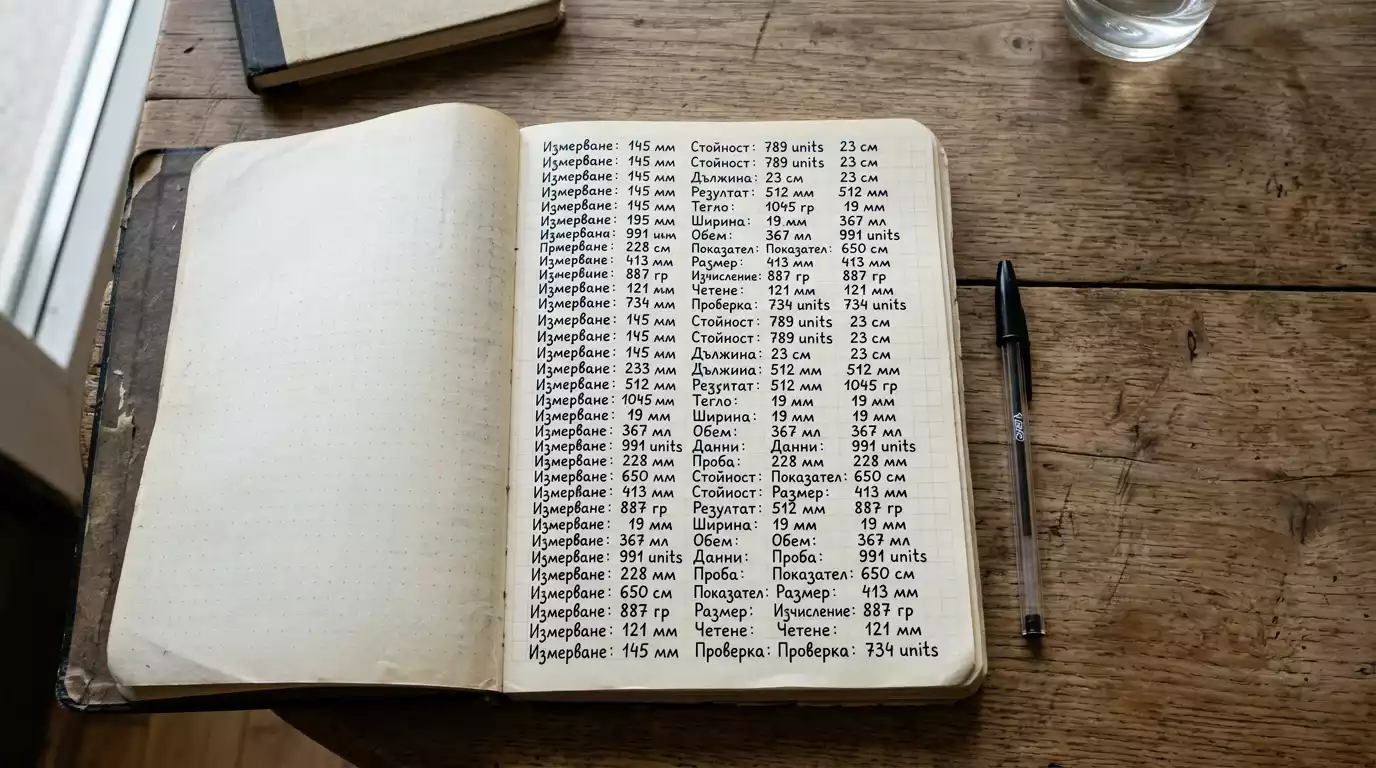 Измерване: 145 мм Стойност: 789 units 23 см
Измерване: 145 мм Стойност: 789 units 23 см
Измерване: 145 мм Дължина: 23 см 23 см
Измерване: 145 мм Резултат: 512 мм 512 мм
Измерване: 145 мм Тегло: 1045 гр 19 мм
Измерване: 195 мм Ширина: 19 мм 367 мл
Измервана: 991 Обем: 367 мл 991 units
Прмерване: 228 см Показател: Показател: 650 см
Измерване: 413 мм Размер: 413 мм 413 мм
Измервиие: 887 гр Изчисление: 887 гр 887 гр
Измерване: 121 мм Четене: 121 мм 121 мм
Измерване: 734 мм Проверка: 734 units 734 units
Измерване: 145 мм Стойност: 789 units 23 см
Измерване: 145 мм Стойност: 789 units 23 см
Измерване: 145 мм Дължина: 23 см 23 см
Измерване: 233 мм Дължииа: 512 мм 512 мм
Измерване: 512 мм Резултат: 512 мм 1045 гр
Измерване: 1045 мм Тегло: 19 мм 19 мм
Измерване: 19 мм Ширина: 19 мм 19 мм
Измерване: 367 мл Обем: 367 мл 367 мл
Измерване: 991 units Данни: Данни: 991 units
Измерване: 228 мм Проба: 228 мм 228 мм
Измерване: 650 мм Стойност: Показател: 650 см
Измерване: 413 мм Стойиост: Размер: 413 мм
Измерване: 887 гр Резултат: 512 мм 887 гр
Измерване: 19 мм Ширина: 19 мм 19 мм
Измерване: 367 мл Обем: Обем: 367 мл
Измерване: 991 units Данни: Проба: 991 units
Измерване: 228 мм Проба: Показател: 650 см
Измерване: 650 см Показател: Размер: 413 мм
Измерване: 887 гр Размер: Изчисление: 887 гр
Измерване: 121 мм Четене: Четене: 121 мм
Измерване: 145 мм Проверка: Проверка: 734 units